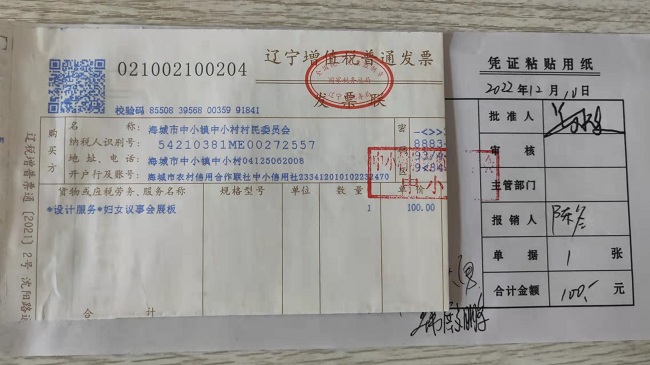 辽宁增值税普通发票
发票联
021002100204
校验码 85508 39568 00359 91841
购买方
名称：海城市中小镇中小村村民委员会
纳税人识别号：54210381ME00272557
地址、电话：海城市中小镇中小村04125062008
开户行及账号：海城市农村信用合作联社中小信用社233412010102232470
密
-<>>
8883-
93/4<
9<84-
货物或应税劳务、服务名称 规格型号 单位 数量 单价
*设计服务*妇女议事会展板 1 100.00
合计
辽税增普票通〔2021〕2号沈阳路
国家税务总局
中小
凭证粘贴用纸
2022年12月10日
批准人
审核
主管部门
报销人
单据 1 张
合计金额 100.- 元